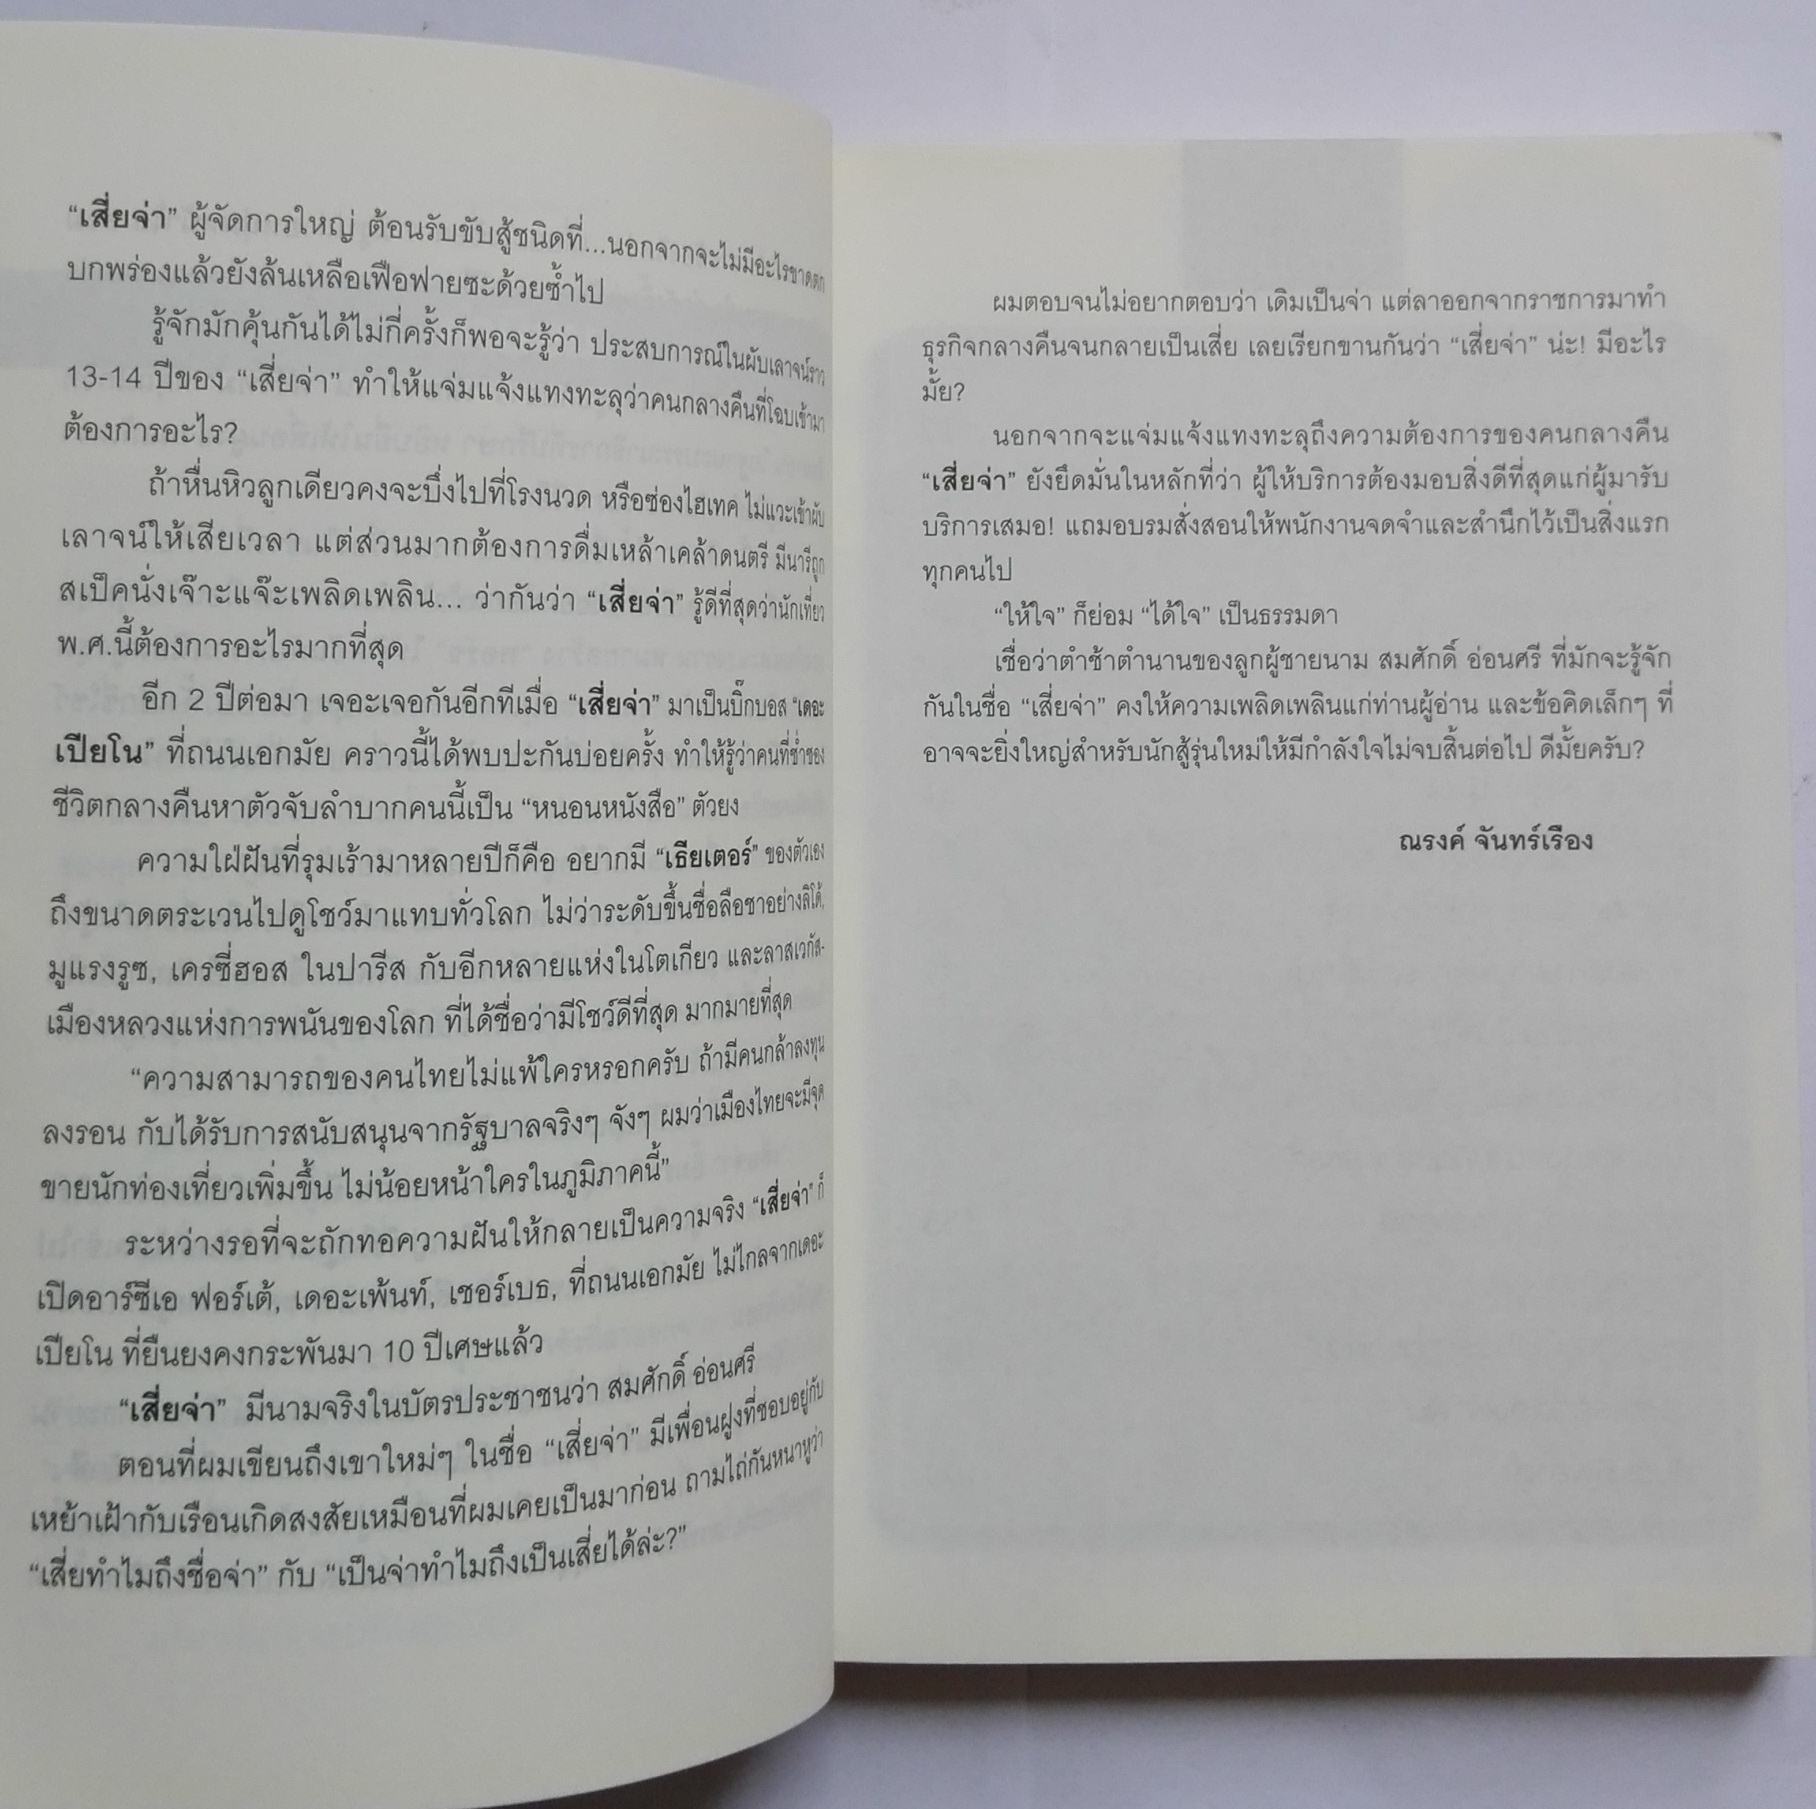 “เสี่ยจ่า” ผู้จัดการใหญ่ ต้อนรับขับสู้ชนิดที่...นอกจากจะไม่มีอะไรขาดตก
บกพร่องแล้วยังล้นเหลือเฟือฟายซะด้วยซ้ำไป
รู้จักมักคุ้นกันได้ไม่กี่ครั้งก็พอจะรู้ว่า ประสบการณ์ในผับเลาจน์ราว
13-14 ปีของ “เสี่ยจ่า” ทำให้แจ่มแจ้งแทงทะลุว่าคนกลางคืนที่โฉบเข้ามา
ต้องการอะไร?
ถ้าหื่นหิวลูกเดียวคงจะบึ่งไปที่โรงนวด หรือซ่องไฮเทค ไม่แวะเข้าผับ
เลาจน์ให้เสียเวลา แต่ส่วนมากต้องการดื่มเหล้าเคล้าดนตรี มีนารีถูก
สเป็คนั่งเจ๊าะแจ๊ะเพลิดเพลิน... ว่ากันว่า “เสี่ยจ่า” รู้ดีที่สุดว่านักเที่ยว
พ.ศ.นี้ต้องการอะไรมากที่สุด
อีก 2 ปีต่อมา เจอะเจอกันอีกทีเมื่อ “เสี่ยจ่า” มาเป็นบิ๊กบอส “เดอะ
เปียโน” ที่ถนนเอกมัย คราวนี้ได้พบปะกันบ่อยครั้ง ทำให้รู้ว่าคนที่ช่ำชอง
ชีวิตกลางคืนหาตัวจับลำบากคนนี้เป็น “หนอนหนังสือ” ตัวยง
ความใฝ่ฝันที่รุมเร้ามาหลายปีก็คือ อยากมี “เธียเตอร์” ของตัวเอง
ถึงขนาดตระเวนไปดูโชว์มาแทบทั่วโลก ไม่ว่าระดับขึ้นชื่อลือชาอย่างลิโด้,
มูแรงรูซ, เครซี่ฮอส ในปารีส กับอีกหลายแห่งในโตเกียว และลาสเวกัส-
เมืองหลวงแห่งการพนันของโลก ที่ได้ชื่อว่ามีโชว์ดีที่สุด มากมายที่สุด
“ความสามารถของคนไทยไม่แพ้ใครหรอกครับ ถ้ามีคนกล้าลงทุน
ลงรอน กับได้รับการสนับสนุนจากรัฐบาลจริงๆ จังๆ ผมว่าเมืองไทยจะมีจุด
ขายนักท่องเที่ยวเพิ่มขึ้น ไม่น้อยหน้าใครในภูมิภาคนี้”
ระหว่างรอที่จะถักทอความฝันให้กลายเป็นความจริง “เสี่ยจ่า” ก็
เปิดอาร์ซีเอ ฟอร์เต้, เดอะเพ้นท์, เชอร์เบธ, ที่ถนนเอกมัย ไม่ไกลจากเดอะ
เปียโน ที่ยืนยงคงกระพันมา 10 ปีเศษแล้ว
“เสี่ยจ่า” มีนามจริงในบัตรประชาชนว่า สมศักดิ์ อ่อนศรี
ตอนที่ผมเขียนถึงเขาใหม่ๆ ในชื่อ “เสี่ยจ่า” มีเพื่อนฝูงที่ชอบอยู่กับ
เหย้าเฝ้ากับเรือนเกิดสงสัยเหมือนที่ผมเคยเป็นมาก่อน ถามไถ่กันหนาหูว่า
“เสี่ยทำไมถึงชื่อจ่า” กับ “เป็นจ่าทำไมถึงเป็นเสี่ยได้ล่ะ?”
ผมตอบจนไม่อยากตอบว่า เดิมเป็นจ่า แต่ลาออกจากราชการมาทำ
ธุรกิจกลางคืนจนกลายเป็นเสี่ย เลยเรียกขานกันว่า “เสี่ยจ่า” น่ะ! มีอะไร
มั้ย?
นอกจากจะแจ่มแจ้งแทงทะลุถึงความต้องการของคนกลางคืน
“เสี่ยจ่า” ยังยึดมั่นในหลักที่ว่า ผู้ให้บริการต้องมอบสิ่งดีที่สุดแก่ผู้มารับ
บริการเสมอ! แถมอบรมสั่งสอนให้พนักงานจดจำและสำนึกไว้เป็นสิ่งแรก
ทุกคนไป
“ให้ใจ” ก็ย่อม “ได้ใจ” เป็นธรรมดา
เชื่อว่าตำช้าตำนานของลูกผู้ชายนาม สมศักดิ์ อ่อนศรี ที่มักจะรู้จัก
กันในชื่อ “เสี่ยจ่า” คงให้ความเพลิดเพลินแก่ท่านผู้อ่าน และข้อคิดเล็กๆ ที่
อาจจะยิ่งใหญ่สำหรับนักสู้รุ่นใหม่ให้มีกำลังใจไม่จบสิ้นต่อไป ดีมั้ยครับ?
ณรงค์ จันทร์เรือง